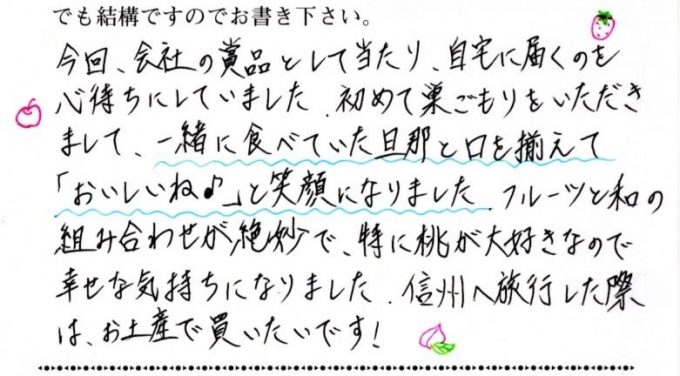 でも結構ですのでお書き下さい。
今回、会社の賞品として当たり、自宅に届くのを
心待ちにしていました.初めて巣ごもりをいただき
まして、一緒に食べていた旦那と口を揃えて
「おいしいね♪」と笑顔になりました.フルーツと和の
組み合わせが絶妙で、特に桃が大好きなので
幸せな気持ちになりました.信州へ旅行した際
は、お土産で買いたいです!